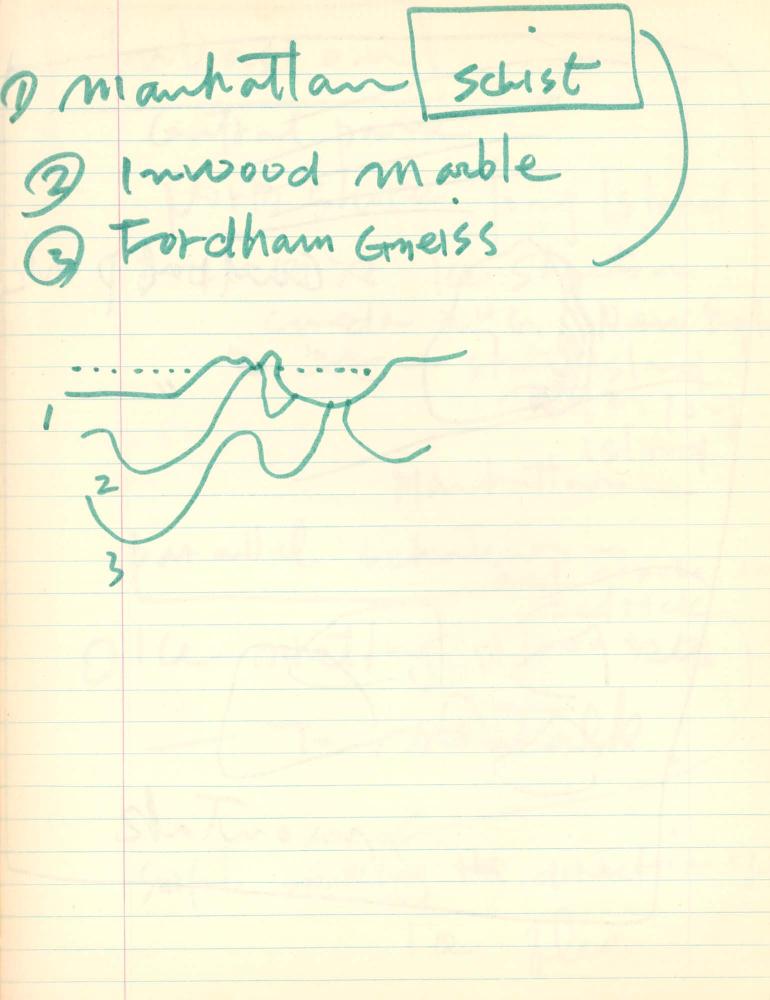 ① Manhattan schist
② Inwood marble
③ Fordham Gneiss
1
2
3